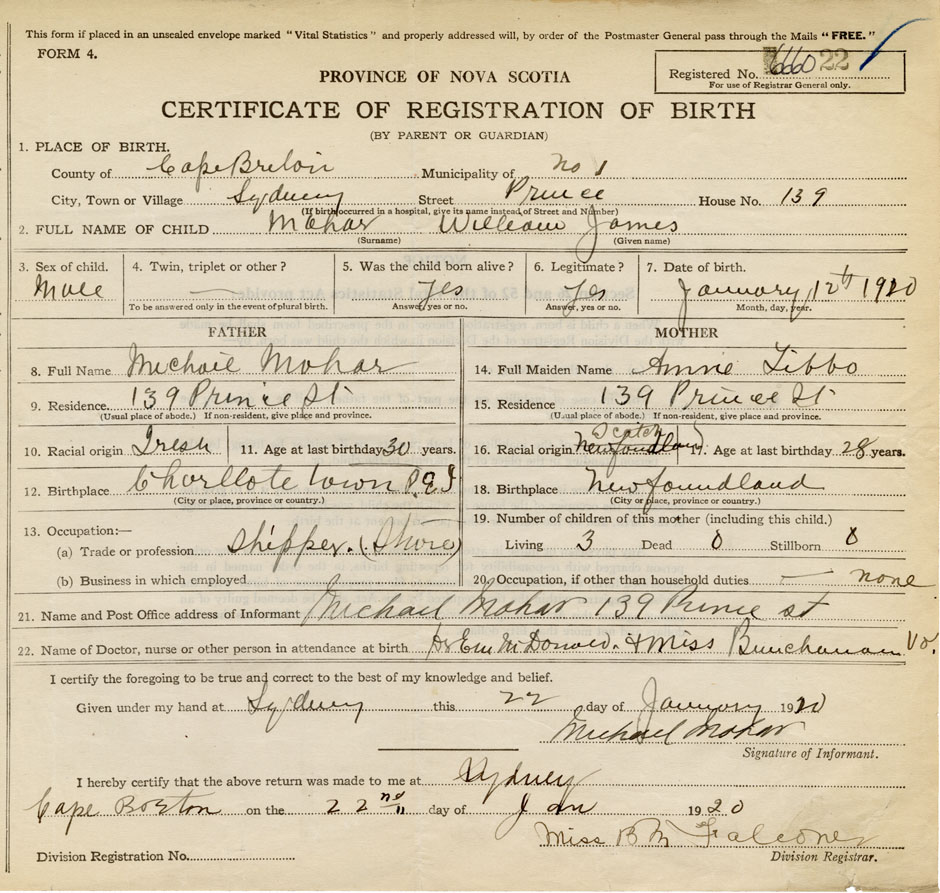 This form if placed in an unsealed envelope marked "Vital Statistics" and properly addressed will, by order of the Postmaster General pass through the Mails "FREE."
FORM 4.
Registered No. 66022
For use of Registrar General only.
PROVINCE OF NOVA SCOTIA
CERTIFICATE OF REGISTRATION OF BIRTH
(BY PARENT OR GUARDIAN)
1. PLACE OF BIRTH.
County of Cape Breton Municipality of No 1
City, Town or Village Sydney Street Prince House No. 139
(If birth occurred in a hospital, give its name instead of Street and Number)
2. FULL NAME OF CHILD Mohar William James
(Surname) (Given name)
3. Sex of child. 4. Twin, triplet or other? 5. Was the child born alive? 6. Legitimate? 7. Date of birth.
Male — Yes Yes January 12th 1920
To be answered only in the event of plural birth. Answer, yes or no. Answer, yes or no. Month, day, year.
FATHER
8. Full Name Michail Mohar
9. Residence. 139 Prince St
(Usual place of abode.) If non-resident, give place and province.
10. Racial origin Iresh 11. Age at last birthday 30 years.
12. Birthplace Charllote town P.E.I
(City or place, province or country.)
13. Occupation:—
(a) Trade or profession Shipper. (Store)
(b) Business in which employed
MOTHER
14. Full Maiden Name Annie Tibbo
15. Residence 139 Prince St
(Usual place of abode.) If non-resident, give place and province.
Scotch
16. Racial origin Newfoundland 17. Age at last birthday 28 years.
18. Birthplace Newfoundland
(City or place, province or country.)
19. Number of children of this mother (including this child.)
Living 3 Dead 0 Stillborn 0
20. Occupation, if other than household duties — none
21. Name and Post Office address of Informant Michael Mohar 139 Prince st
22. Name of Doctor, nurse or other person in attendance at birth Dr McDonald. & Miss Bunchanan
I certify the foregoing to be true and correct to the best of my knowledge and belief.
Given under my hand at Sydney this 22 day of January 1920
Michael Mohar
Signature of Informant.
I hereby certify that the above return was made to me at Sydney
Cape Boston on the 22nd day of Jan 1920
Miss B M Falconer
Division Registration No. Division Registrar.